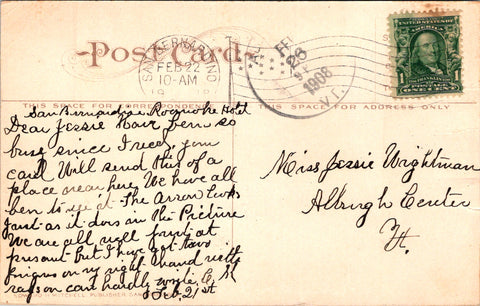 Post Card
SAN BERNARDINO
FEB 22
10-AM
FEB
28
1908
VT.
UNITED STATES OF AMERICA
1
ONE CENT
THIS SPACE FOR CORRESPONDENCE
THIS SPACE FOR ADDRESS ONLY
San Birnardino Roanoke Hotel
Dear Jessie Have been so
busy since I recd you
card Will send this of a
place near here, We have all
ben to se it The Arrow Looks
Just as it dors in the Picture
We are all well
presant but I have got two
on my right hand with
rags on can hardly write
Feb. 21st
EDWARD H. MITCHELL PUBLISHER SAN
Miss Jessie Wightman
Alburgh Center
Vt.